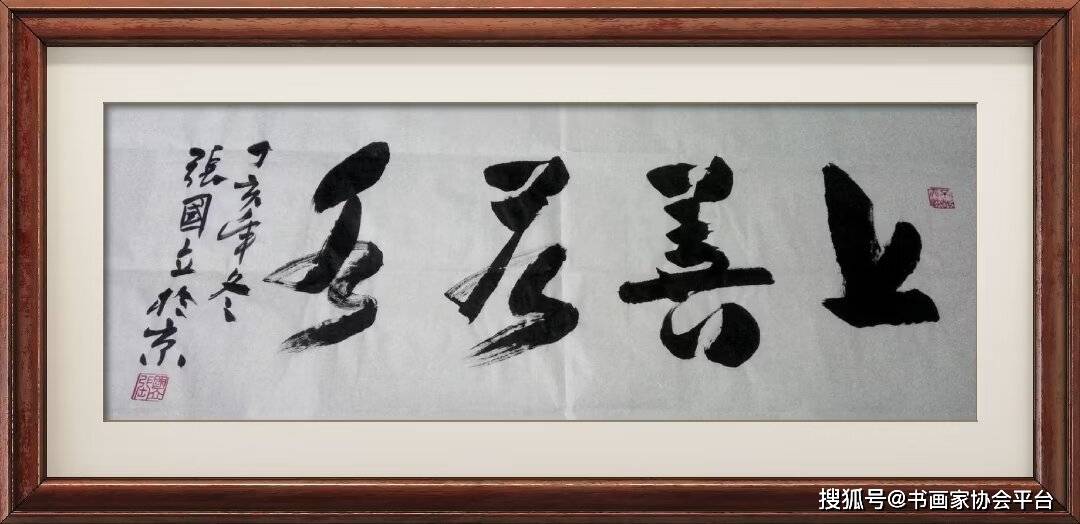 上善若水
丁亥年冬
張國立於京
搜狐号@书画家协会平台